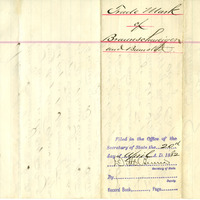 Trade Mark
of
Braunschweiger
and Bumsted
Filed in the Office of the
Secretary of State the 20th
day of April A. D. 1892
Secretary of State
By
Deputy
Record Book Page